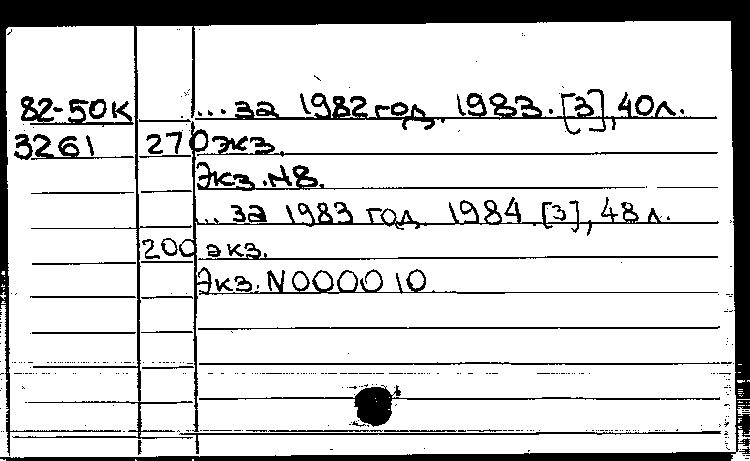 82-50К ... за 1982 год. 1983. [3], 40л.
3261 270 экз.
Экз. N8.
... за 1983 год. 1984. [3], 48 л.
200 экз.
Экз. N000010